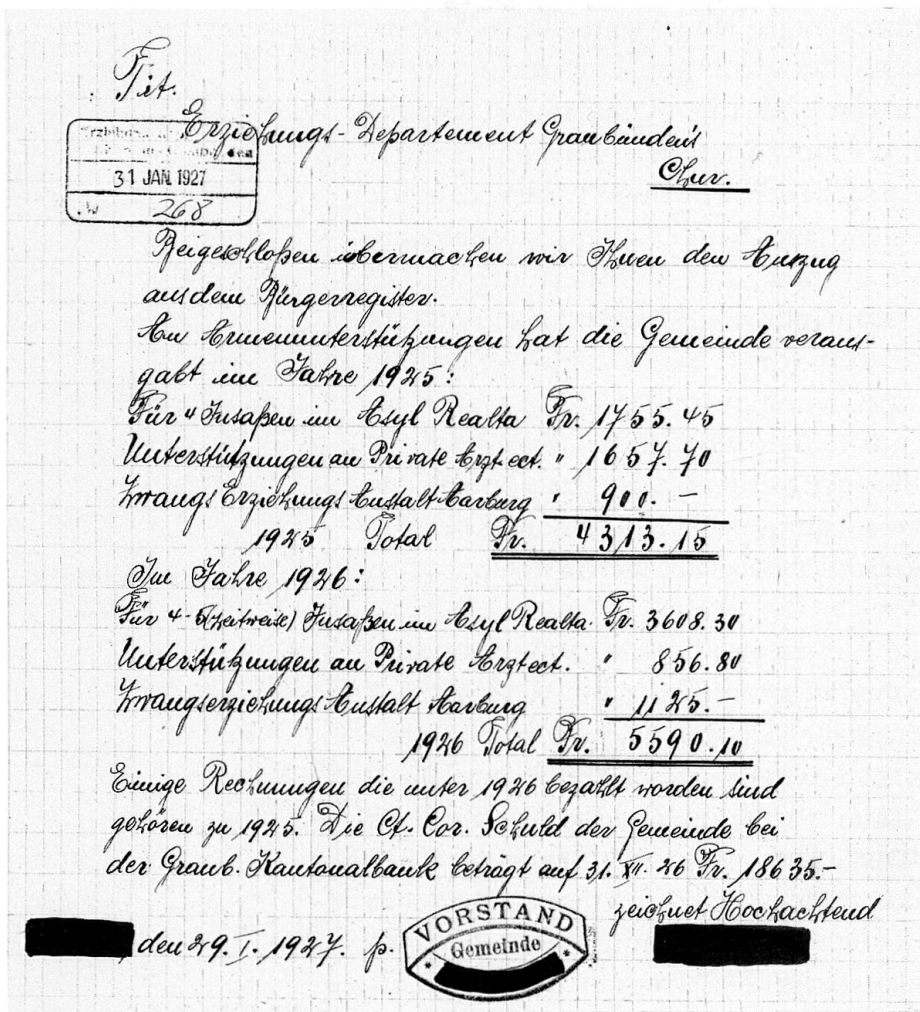 Tit.
Erziehungs-Departement Graubünden's
Chur.
31 JAN. 1927
268
Beigeschloßen übermachen wir Ihnen den Auszug
aus dem Bürgerregister.
An Armenunterstützungen hat die Gemeinde veraus-
gabt im Jahre 1925:
Für 4 Insaßen im Asyl Realta Fr. 1755.45
Unterstützungen an Private Arzt ect. " 1657.70
Zwangs Erziehungs Anstalt Aarburg " 900.-
1925 Total Fr. 4313.15
Im Jahre 1926:
Für 4-5(zeitweise) Insaßen im Asyl Realta. Fr. 3608.30
Unterstützungen an Private Arzt ect. " 856.80
Zwangserziehungs Anstalt Aarburg " 1125.-
1926 Total Fr. 5590.10
Einige Rechnungen die unter 1926 bezahlt worden sind
gehören zu 1925. Die Ct. Cor. Schuld der Gemeinde bei
der Graub. Kantonalbank beträgt auf 31. XII. 26 Fr. 18635.-
zeichnet Hochachtend
den 29. I. 1927. p.
VORSTAND
Gemeinde